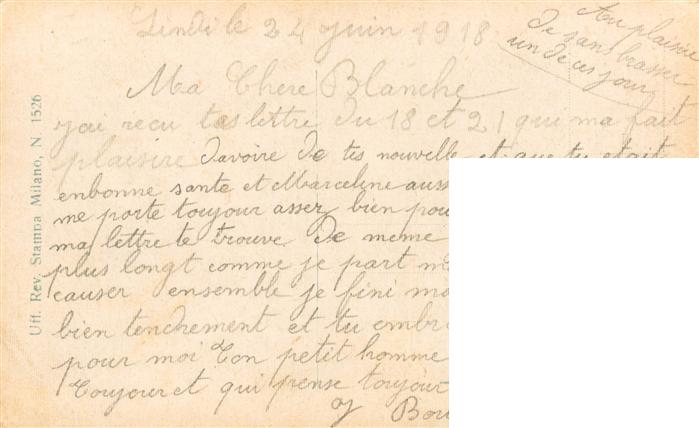 Lindi le 24 juin 1918
Au plaisire
de sanbrasser
un de ces jour
Ma Chere Blanche
jai recu tas lettre du 18 et 21 qui ma fait
plaisire davoire de tes nouvelle et que tu etait
enbonne sante et Marceline auss
me porte toujour asser bien pou
ma lettre te trouve de meme
plus longt comme je part
causer ensemble je fini
bien tendrement et tu embr
pour moi Ton petit homme
Toujour et qui pense toujour
Bou
Uff. Rev. Stampa Milano, N 1526